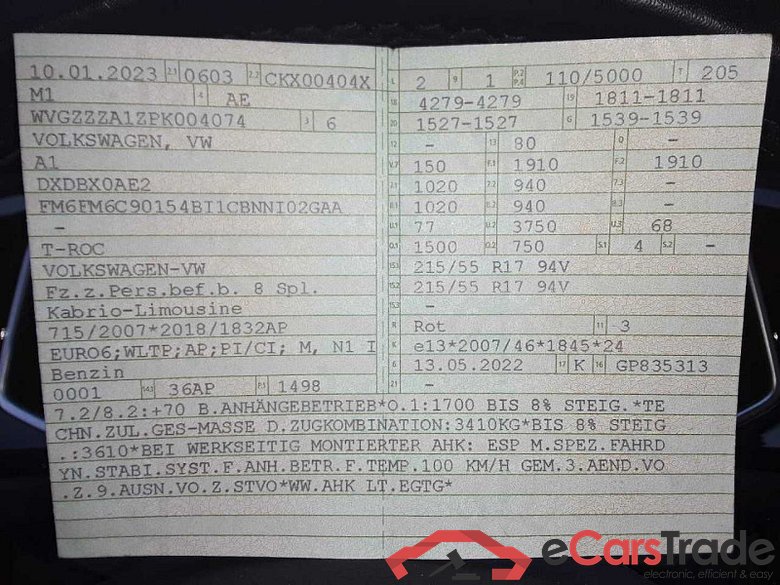 10.01.2023 2.1 0603 2.2 CKX00404X
M1 4 AE
WVGZZZA1ZPK004074 3 6
VOLKSWAGEN, VW
A1
DXDBX0AE2
FM6FM6C90154BI1CBNNI02GAA
-
T-ROC
VOLKSWAGEN-VW
Fz.z.Pers.bef.b. 8 Spl.
Kabrio-Limousine
715/2007*2018/1832AP
EURO6;WLTP;AP;PI/CI; M, N1 I
Benzin
0001 14.1 36AP P.1 1498
L 2 9 1 P.2 P.4 110/5000 T 205
18 4279-4279 19 1811-1811
20 1527-1527 G 1539-1539
12 - 13 80 Q -
V.7 150 F.1 1910 F.2 1910
7.1 1020 7.2 940 7.3 -
8.1 1020 8.2 940 8.3 -
U.1 77 U.2 3750 U.3 68
O.1 1500 O.2 750 S.1 4 S.2 -
15.1 215/55 R17 94V
15.2 215/55 R17 94V
15.3 -
R Rot 11 3
K e13*2007/46*1845*24
6 13.05.2022 17 K 16 GP835313
21 -
7.2/8.2:+70 B.ANHÄNGEBETRIEB*O.1:1700 BIS 8% STEIG.*TE
CHN.ZUL.GES-MASSE D.ZUGKOMBINATION:3410KG*BIS 8% STEIG
.:3610*BEI WERKSEITIG MONTIERTER AHK: ESP M.SPEZ.FAHRD
YN.STABI.SYST.F.ANH.BETR.F.TEMP.100 KM/H GEM.3.AEND.VO
.Z.9.AUSN.VO.Z.STVO*WW.AHK LT.EGTG*
eCarsTrade
electronic, efficient & easy